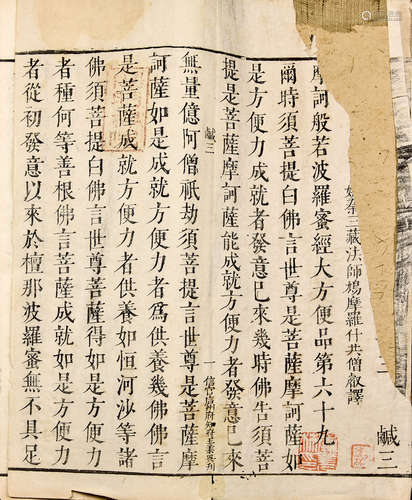 鹹三
姚秦三藏法師鳩摩羅什共僧叡譯
摩訶般若波羅蜜經大方便品第六十九
爾時須菩提白佛言世尊是菩薩摩訶薩如
是方便力成就者發意已來幾時佛告須菩
提是菩薩摩訶薩能成就方便力者發意已來
鹹三
一
無量億阿僧祇劫須菩提言世尊是菩薩摩
訶薩如是成就方便力者為供養幾佛佛言
是菩薩成就方便力者供養如恒河沙等諸
佛須菩提白佛言世尊菩薩得如是方便力
者種何等善根佛言菩薩成就如是方便力
者從初發意以來於檀那波羅蜜無不具足